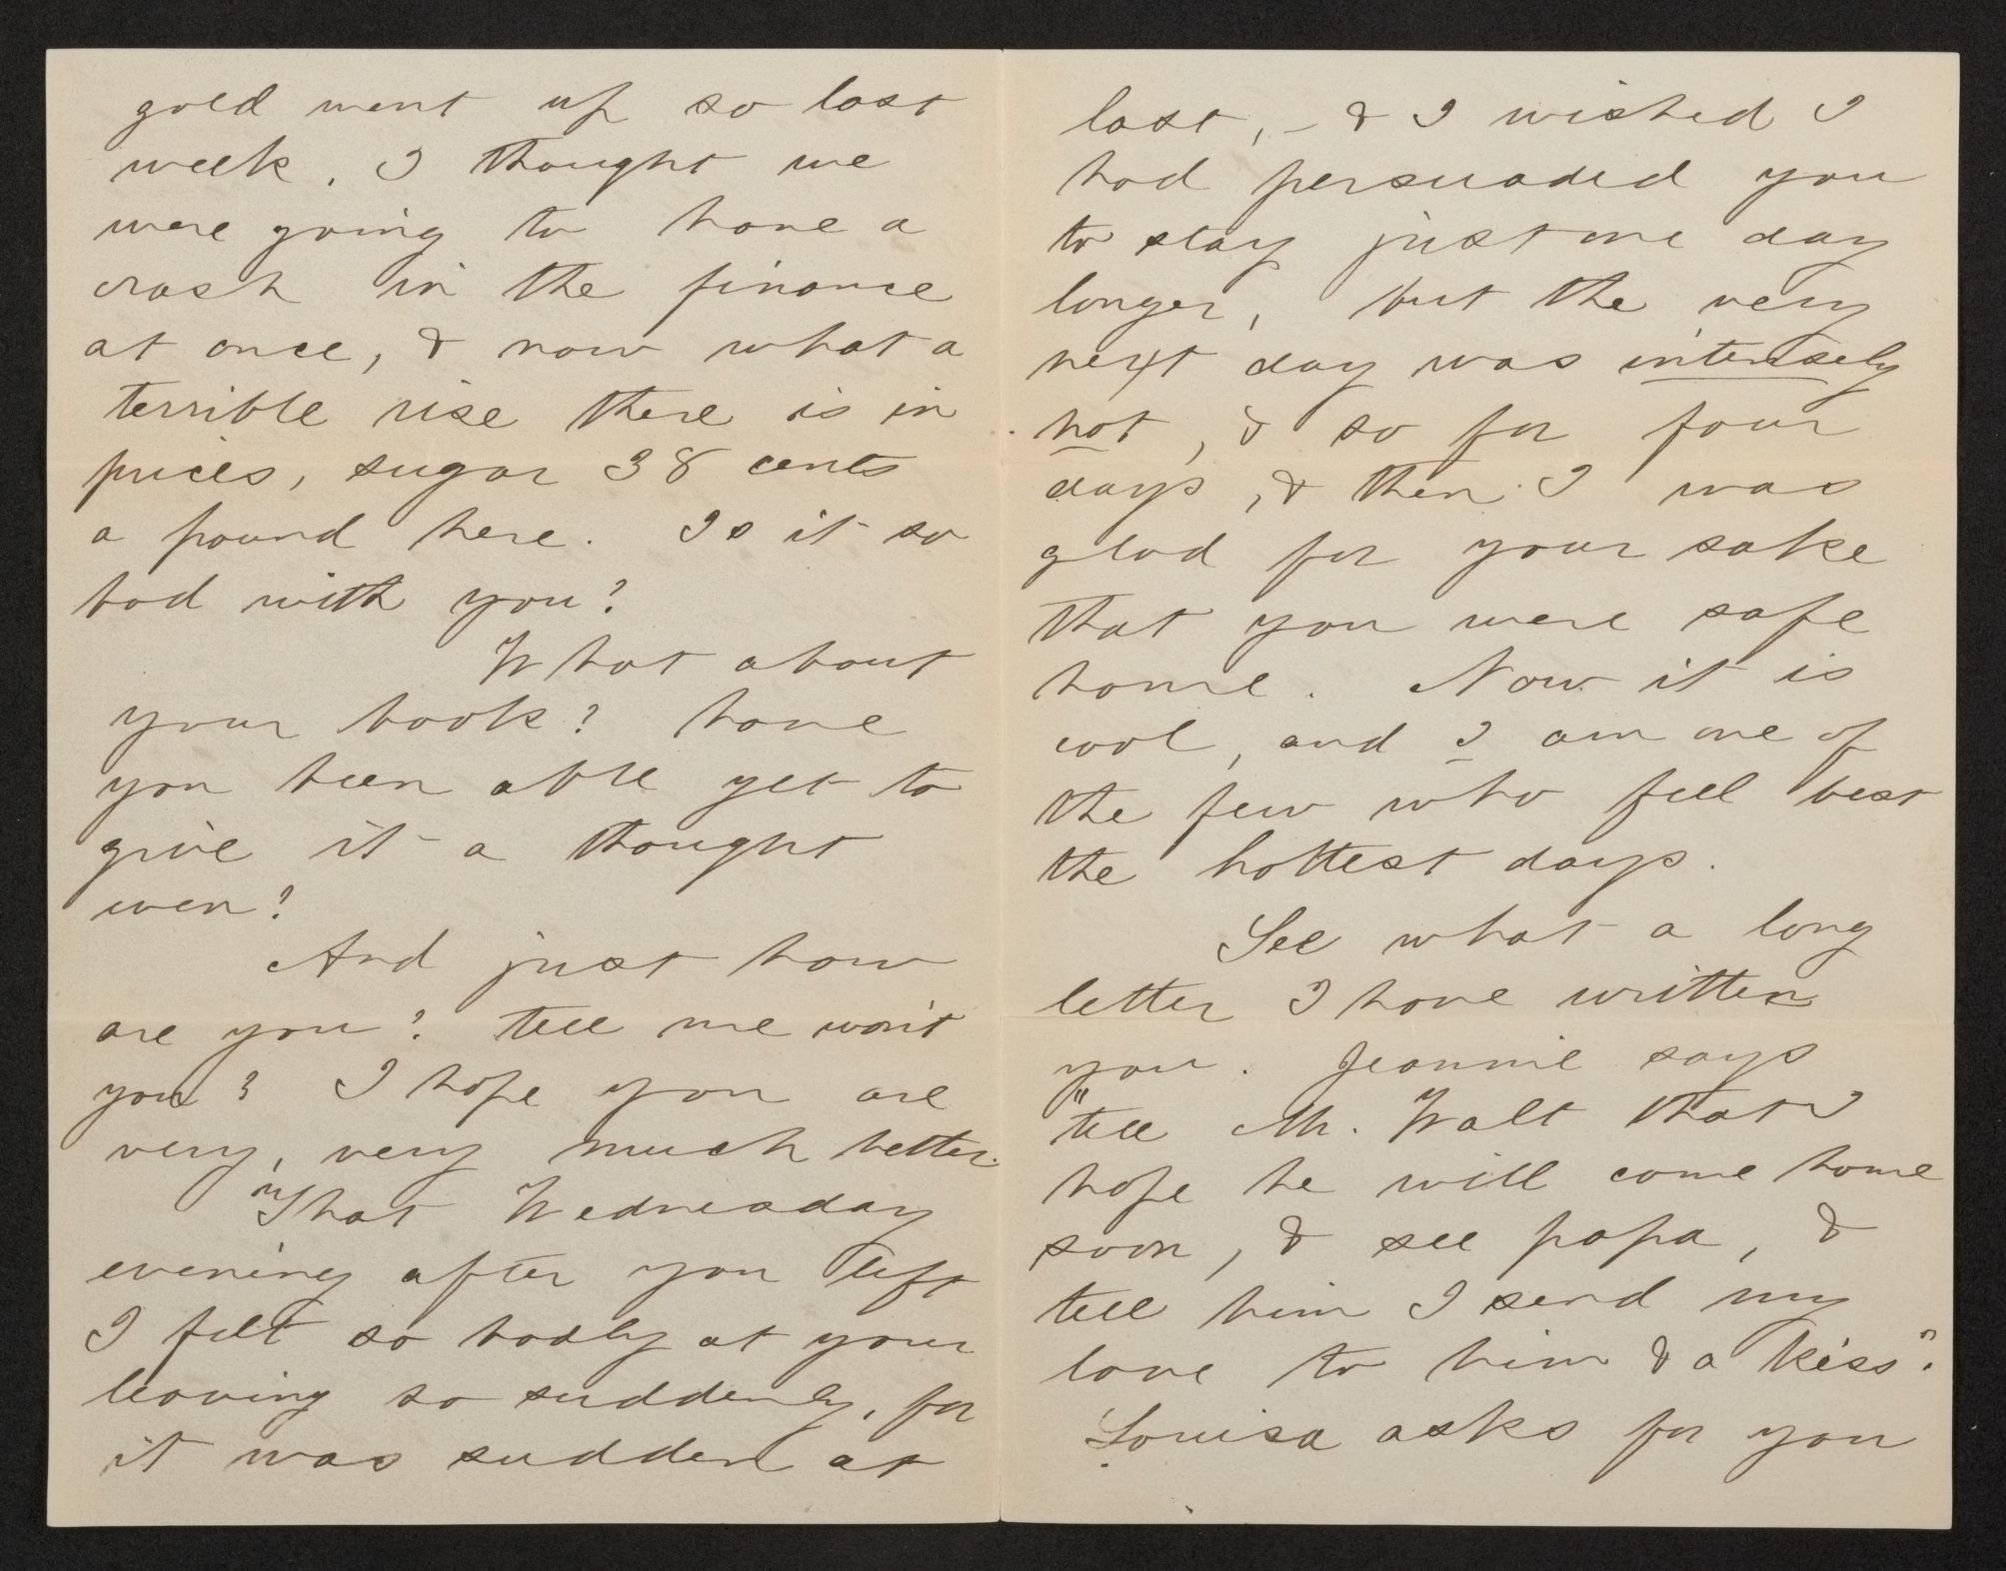 gold went up so last
week. I thought we
were going to have a
crash in the finance
at once, & now what a
terrible rise there is in
prices, sugar 38 cents
a pound here. Is it so
bad with you?
What about
your book? have
you been able yet to
give it a thought
even?
And just how
are you? tell me won't
you? I hope you are
very, very much better.
That Wednesday
evening after you left
I felt so badly at your
leaving so suddenly, for
it was sudden at
last, – & I wished I
had persuaded you
to stay just one day
longer, but the very
next day was intensely
hot, & so for four
days, & then I was
glad for your sake
that you were safe
home. Now it is
cool, and I am one of
the few who feel best
the hottest days.
See what a long
letter I have written
you. Jeannie says
"tell Mr. Walt that I
hope he will come home
soon, & see papa, &
tell him I send my
love to him & a kiss".
Louisa asks for you